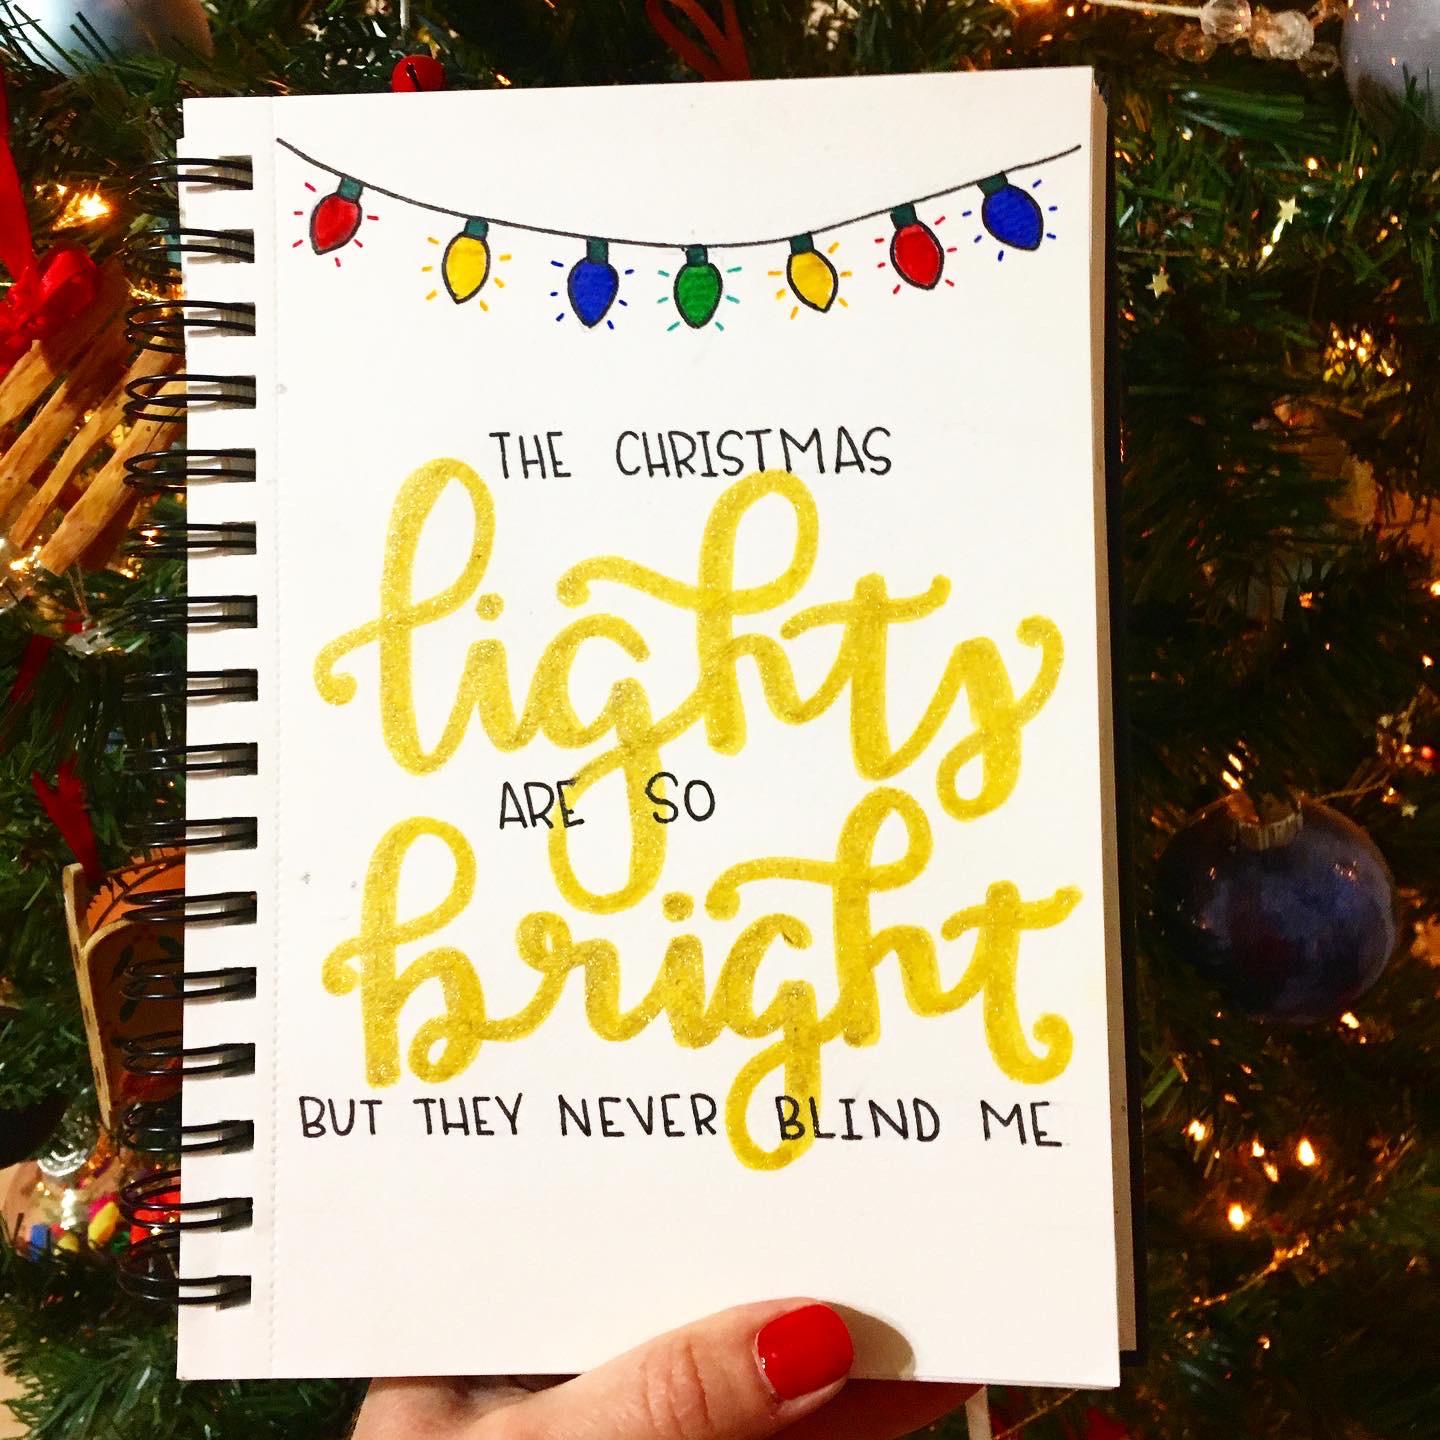 THE CHRISTMAS
lights
ARE SO
bright
BUT THEY NEVER BLIND ME